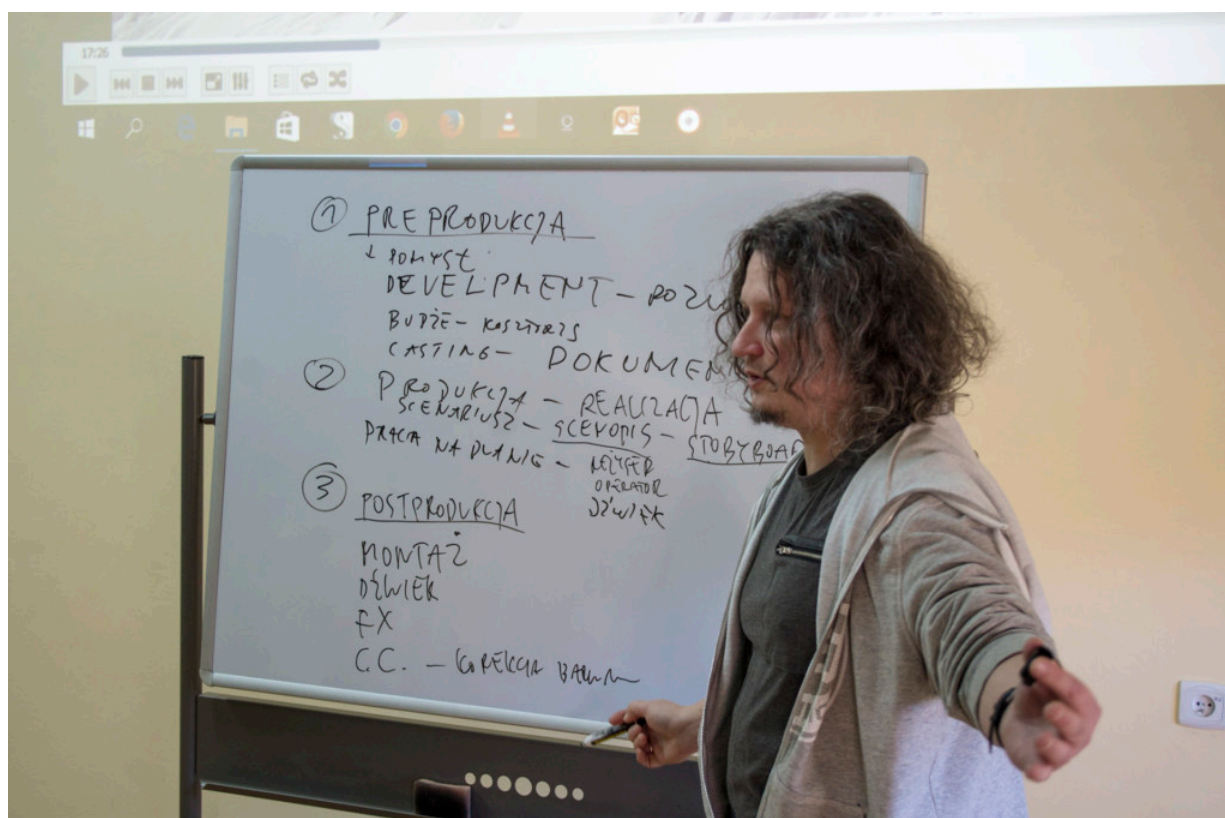 17:26
① PREPRODUKCJA
↓ POMYSŁ
DEVELPMENT –
BUDŻE – KOSZTORYS
CASTING – DOKUMEN
② PRODUKCJA – REALIZACJA
SCENARIUSZ – SCENOPIS – STORYBOAR
PRACA NA PLANIE – REŻYSER
OPERATOR
DŹWIĘK
③ POSTPRODUKCJA
MONTAŻ
DŹWIĘK
FX
C.C. – KOREKCJA BARW